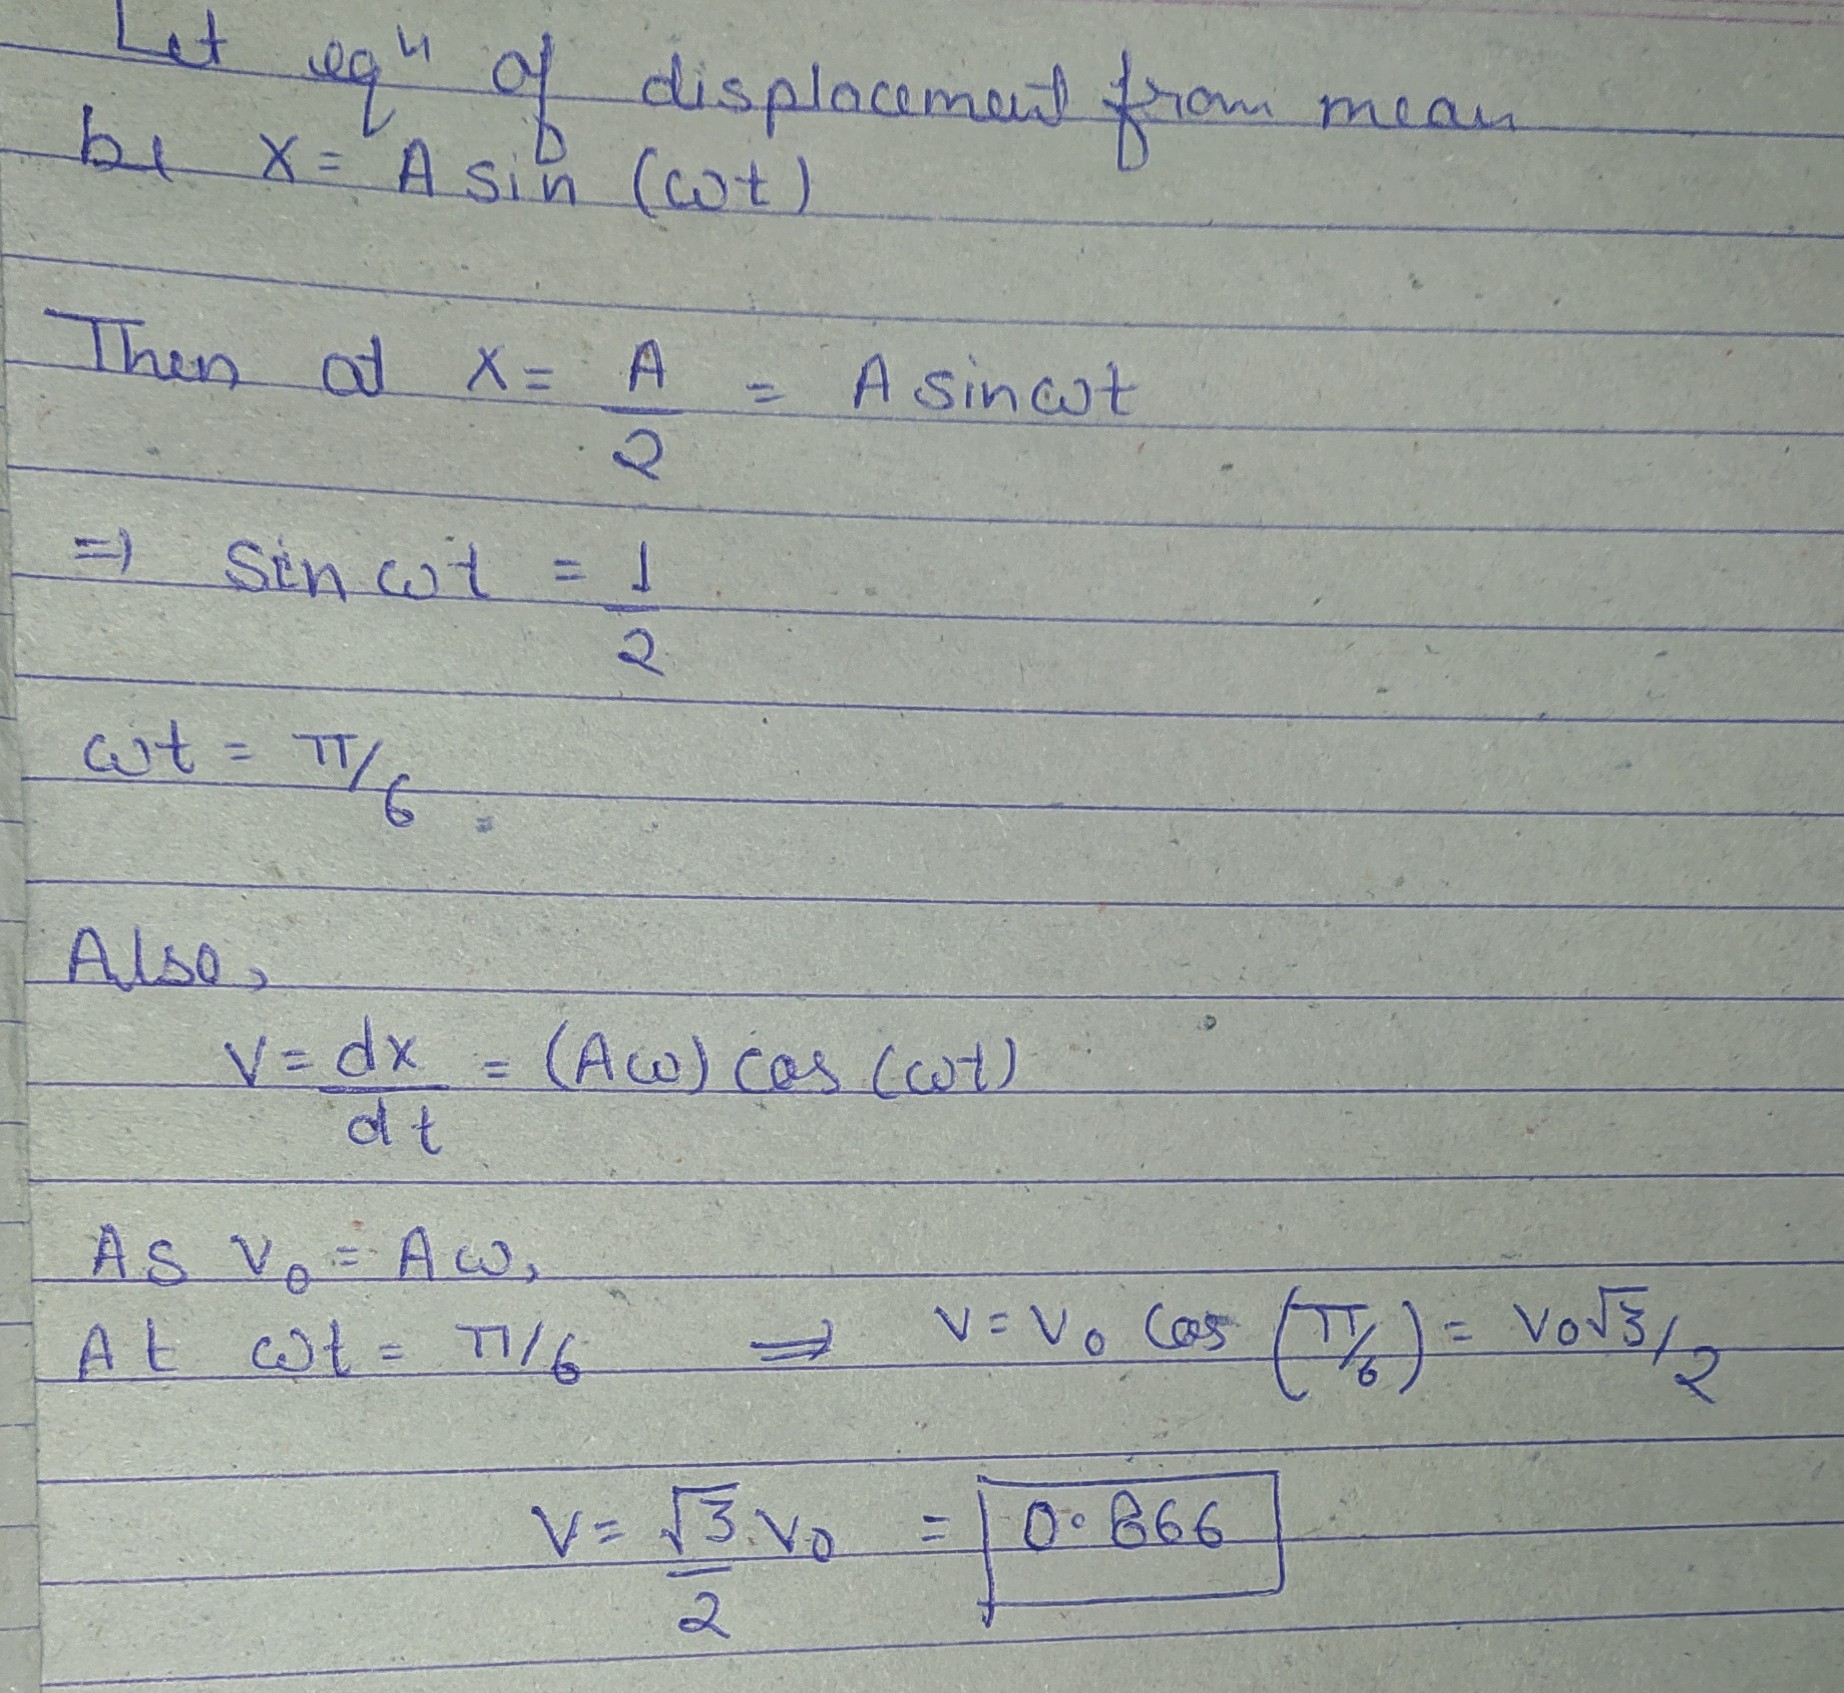 Let eqⁿ of displacement from mean
be x = A sin (ωt)
Then at x = A/2 = A sin ωt
⇒ Sin ωt = 1/2
ωt = π/6
Also,
V = dx/dt = (Aω) cos (ωt)
As V₀ = Aω,
At ωt = π/6 ⇒ V = V₀ Cos (π/6) = V₀√3/2
V = √3/2 V₀ = 0.866